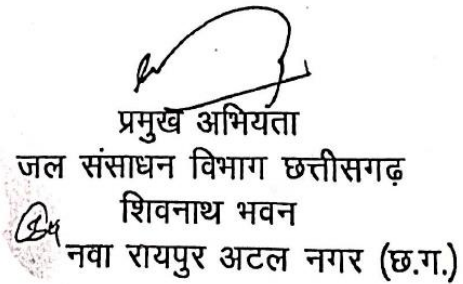 प्रमुख अभियता
जल संसाधन विभाग छत्तीसगढ़
शिवनाथ भवन
नवा रायपुर अटल नगर (छ.ग.)